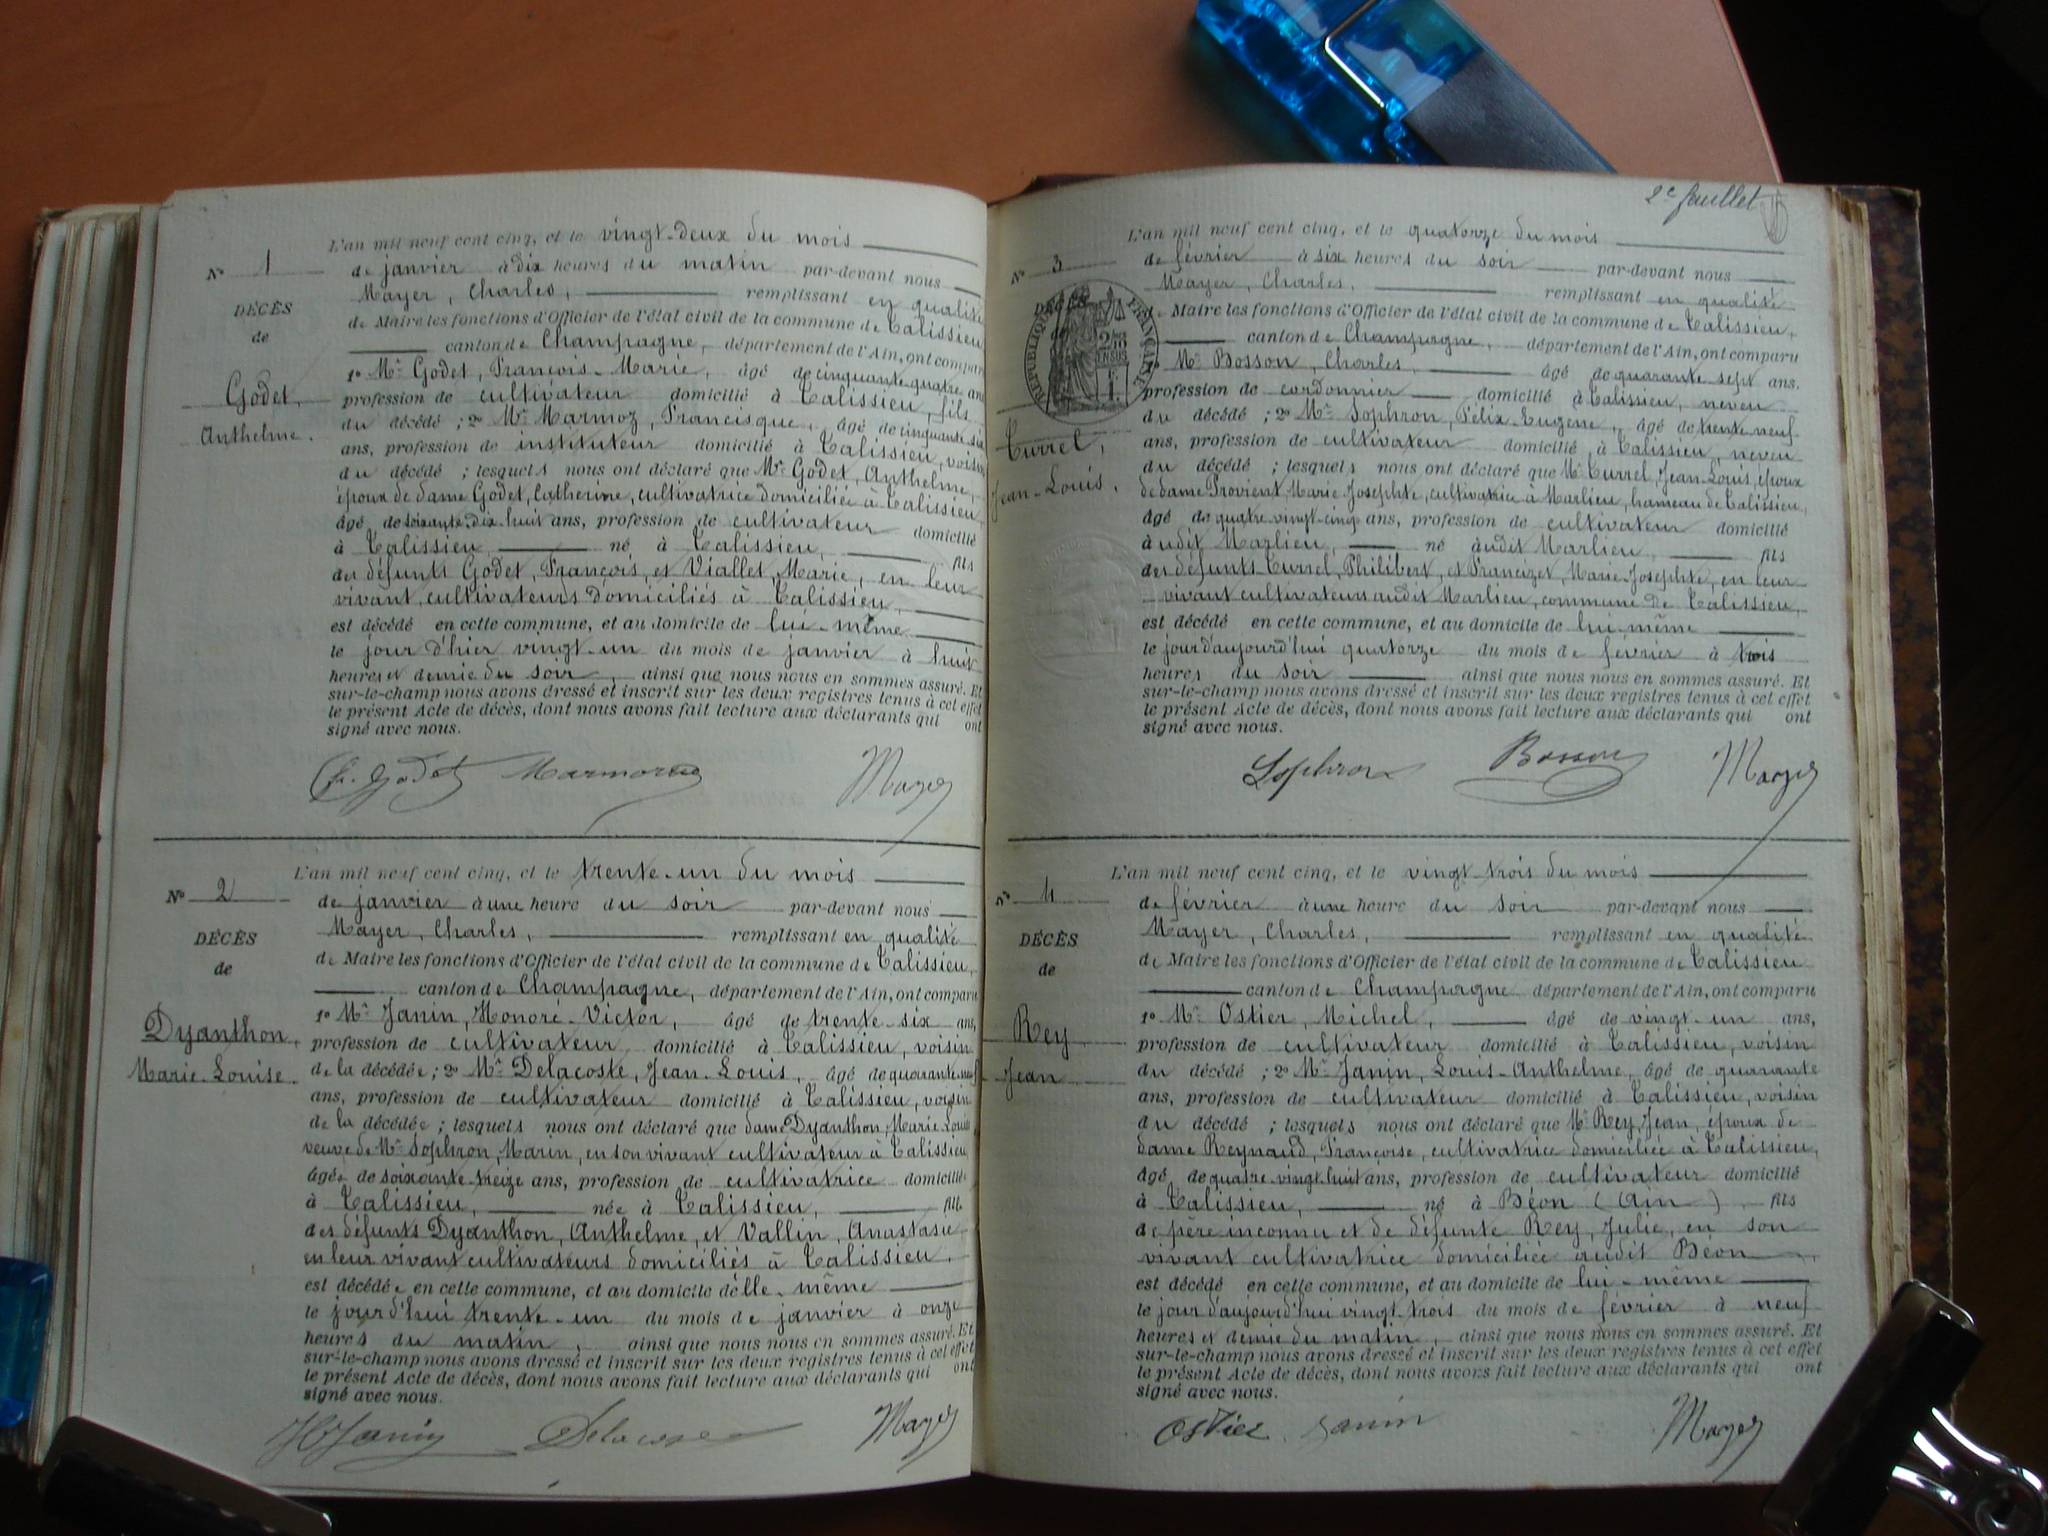 L'an mil neuf cent cinq, et le vingt-deux du mois
N° 1 de janvier à dix heures du matin par-devant nous
Mayer, Charles, remplissant en qualité
DÉCÈS de Maire les fonctions d'Officier de l'état civil de la commune de Talissieu
de canton de Champagne, département de l'Ain, ont comparu
1° Mr Godet, François-Marie, âgé de cinquante-quatre ans
Godet, profession de cultivateur domicilié à Talissieu, fils
Anthelme. du décédé ; 2° Mr Marmoz, Francisque, âgé de cinquante-six
ans, profession de instituteur domicilié à Talissieu, voisin
du décédé ; lesquels nous ont déclaré que Mr Godet, Anthelme,
époux de dame Godet, Catherine, cultivatrice domiciliée à Talissieu,
âgé de soixante-dix-huit ans, profession de cultivateur domicilié
à Talissieu, né à Talissieu, fils
des défunts Godet, François, et Viallet, Marie, en leur
vivant cultivateurs domiciliés à Talissieu,
est décédé en cette commune, et au domicile de lui-même
le jour d'hier vingt-un du mois de janvier à huit
heures et demie du soir, ainsi que nous nous en sommes assuré. Et
sur-le-champ nous avons dressé et inscrit sur les deux registres tenus à cet effet
le présent Acte de décès, dont nous avons fait lecture aux déclarants qui ont
signé avec nous.
Godet Marmoz Mayer
L'an mil neuf cent cinq, et le trente-un du mois
N° 2 de janvier à une heure du soir par-devant nous
Mayer, Charles, remplissant en qualité
DÉCÈS de Maire les fonctions d'Officier de l'état civil de la commune de Talissieu,
de canton de Champagne, département de l'Ain, ont comparu
1° Mr Janin, Honoré-Victor, âgé de trente-six ans,
Dyanthon, profession de cultivateur domicilié à Talissieu, voisin
Marie-Louise. de la décédée ; 2° Mr Delacoste, Jean-Louis, âgé de quarante-neuf
ans, profession de cultivateur domicilié à Talissieu, voisin
de la décédée ; lesquels nous ont déclaré que dame Dyanthon, Marie-Louise
veuve de Mr Sophron, Marin, en son vivant cultivateur à Talissieu,
âgée de soixante-treize ans, profession de cultivatrice domiciliée
à Talissieu, née à Talissieu, fille
des défunts Dyanthon, Anthelme, et Vallin, Anastasie
en leur vivant cultivateurs domiciliés à Talissieu.
est décédée en cette commune, et au domicile d'elle-même
le jour d'hui trente-un du mois de janvier à onze
heures du matin, ainsi que nous nous en sommes assuré. Et
sur-le-champ nous avons dressé et inscrit sur les deux registres tenus à cet effet
le présent Acte de décès, dont nous avons fait lecture aux déclarants qui ont
signé avec nous.
HJanin Delacoste Mayer
2e feuillet
L'an mil neuf cent cinq, et le quatorze du mois
N° 3 de février à six heures du soir par-devant nous
Mayer, Charles, remplissant en qualité
DÉCÈS de Maire les fonctions d'Officier de l'état civil de la commune de Talissieu,
RÉPUBLIQUE FRANÇAISE
canton de Champagne, département de l'Ain, ont comparu
Mr Bosson, Charles, âgé de quarante-sept ans.
profession de cordonnier domicilié à Talissieu, neveu
du décédé ; 2° Mr Sophron, Félix-Eugène, âgé de trente-neuf
Turrel, ans, profession de cultivateur domicilié à Talissieu, neveu
Jean-Louis. du décédé ; lesquels nous ont déclaré que Mr Turrel, Jean-Louis, époux
de dame Provient, Marie-Josephte, cultivatrice à Marlieu, hameau de Talissieu,
âgé de quatre-vingt-cinq ans, profession de cultivateur domicilié
audit Marlieu, né audit Marlieu, fils
des défunts Turrel, Philibert, et Francizet, Marie-Josephte, en leur
vivant cultivateurs audit Marlieu, commune de Talissieu,
est décédé en cette commune, et au domicile de lui-même
le jour d'aujourd'hui quatorze du mois de février à trois
heures du soir ainsi que nous nous en sommes assuré. Et
sur-le-champ nous avons dressé et inscrit sur les deux registres tenus à cet effet
le présent Acte de décès, dont nous avons fait lecture aux déclarants qui ont
signé avec nous.
Sophron Bosson Mayer
L'an mil neuf cent cinq, et le vingt-trois du mois
N° 4 de février à une heure du soir par-devant nous
Mayer, Charles, remplissant en qualité
DÉCÈS de Maire les fonctions d'Officier de l'état civil de la commune de Talissieu
de canton de Champagne département de l'Ain, ont comparu
1° Mr Ostier, Michel, âgé de vingt-un ans,
Rey profession de cultivateur domicilié à Talissieu, voisin
Jean du décédé ; 2° Mr Janin, Louis-Anthelme, âgé de quarante
ans, profession de cultivateur domicilié à Talissieu, voisin
du décédé ; lesquels nous ont déclaré que Mr Rey, Jean, époux de
dame Reynaud, Françoise, cultivatrice domiciliée à Talissieu,
âgé de quatre-vingt-huit ans, profession de cultivateur domicilié
à Talissieu, né à Béon (Ain) fils
de père inconnu et de défunte Rey, Julie, en son
vivant cultivatrice domiciliée audit Béon,
est décédé en cette commune, et au domicile de lui-même
le jour d'aujourd'hui vingt-trois du mois de février à neuf
heures et demie du matin, ainsi que nous nous en sommes assuré. Et
sur-le-champ nous avons dressé et inscrit sur les deux registres tenus à cet effet
le présent Acte de décès, dont nous avons fait lecture aux déclarants qui ont
signé avec nous.
Ostier Janin Mayer